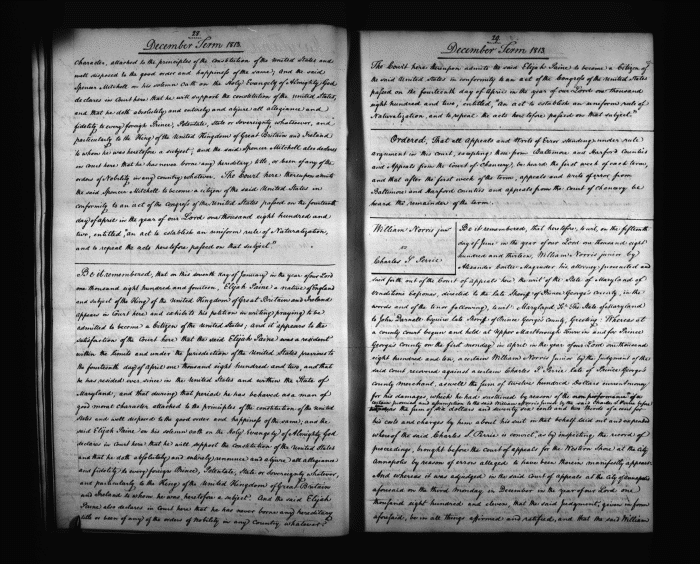 28.
December Term 1813.
character, attached to the principles of the Constitution of the United States and
well disposed to the good order and happiness of the same; and the said
Spencer Mitchell on his solemn oath on the Holy Evangely of Almighty God
declares in Court here that he will support the constitution of the United States,
and that he doth absolutely and entirely abjure all allegiance and
fidelity to every foreign Prince, Potentate, State or Sovereignty whatsoever, and
particularly to the King of the United Kingdom of Great Britain and Ireland
to whom he was heretofore a subject; and the said Spencer Mitchell, also declares
in court here that he has never borne any hereditary title, or been of any of the
orders of Nobility in any country whatsoever. The Court here thereupon admits
the said Spencer Mitchell to become a citizen of the said United States in
conformity to an act of the Congress of the United States passed on the fourteenth
day of april in the year of our Lord one thousand eight hundred and
two, entitled, "an act to establish an uniform rule of Naturalization,
and to repeal the acts heretofore passed on that subject."
Be it remembered, that on this seventh day of January in the year of our Lord
one thousand eight hundred and fourteen, Elijah Paine a native of England
and subject of the King of the United Kingdom of Great Britain and Ireland
appears in Court here and exhibits his petition in writing praying to be
admitted to become a Citizen of the United States; and it appears to the
satisfaction of the Court here that the said Elijah Paine was a resident
within the limits and under the jurisdiction of the United States previous to
the fourteenth day of april one thousand eight hundred and two, and that
he has resided ever since in the United States and within the State of
Maryland; and that during that period he has behaved as a man of
good moral character, attached to the principles of the constitution of the United States
and well disposed to the good order and happiness of the same; and the
said Elijah Paine on his solemn oath on the Holy Evangely of Almighty God
declares in Court here that he will support the Constitution of the United States
and that he doth absolutely and entirely renounce and abjure all allegiance
and fidelity to every foreign Prince, Potentate, State or Sovereignty whatsoever,
and particularly to the King of the United Kingdom of Great Britain
and Ireland to whom he was heretofore a subject. And the said Elijah
Paine also declares in Court here that he has never borne any hereditary
title or been of any of the orders of Nobility in any Country whatever.
29.
December Term 1813.
The Court here thereupon admits the said Elijah Paine to become a Citizen of
the said United States in conformity to an act of the Congress of the United States
passed on the fourteenth day of april in the year of our Lord one thousand
eight hundred and two, entitled, "An act to establish an uniform rule of
Naturalization, and to repeal the acts heretofore passed on that subject."
Ordered, That all Appeals and Writs of Error standing under rule
argument in this Court, excepting those from Baltimore and Harford Counties
and Appeals from the Court of Chancery, be heard the first week of each term,
and that after the first week of the term, appeals and writs of error from
Baltimore and Harford Counties and appeals from the court of chancery be
heard the remainder of the term.
William Norris junr
vs
Charles S. Perrie
Be it remembered, that heretofore, to wit, on the fifteenth
day of June in the year of our Lord one thousand eight
hundred and thirteen, William Norris junior by
Alexander Contee Magruder his attorney, prosecuted and
sued forth out of the Court of appeals here the writ of the State of Maryland of
venditioni exponas, directed to the late Sheriff of Prince George's County, in the
words and of the tenor following, to wit: Maryland, Sc. The State of Maryland
to John Darnall Esquire late Sheriff of Prince George's County, Greeting: Whereas at
a county court begun and held at Upper Marlborough Town in and for Prince
George's County on the first monday in april in the year of our Lord one thousand
eight hundred and ten, a certain William Norris Junior by the judgment of the
said Court recovered against a certain Charles S. Perrie late of Prince George's
County merchant, as well the sum of twelve hundred dollars current money,
for his damages, which he had sustained by reason of the non performance of a
certain promise and assumption to the said William Norris Junior by the said Charles S. Perrie
the sum of six dollars and seventy six cents and two thirds of a cent for
his costs and charges by him about his suit in that behalf laid out and expended
whereof the said Charles S. Perrie is convict, as by inspecting the record of
proceedings, brought before the court of appeals for the Western Shore at the City
Annapolis by reason of errors alleged to have been therein manifestly appears
And whereas it was adjudged in the said Court of appeals at the City of Annapolis
aforesaid on the third Monday in December in the year of our Lord one
thousand eight hundred and eleven, that the said judgment, given in form
aforesaid, be in all things affirmed and ratified, and that the said William